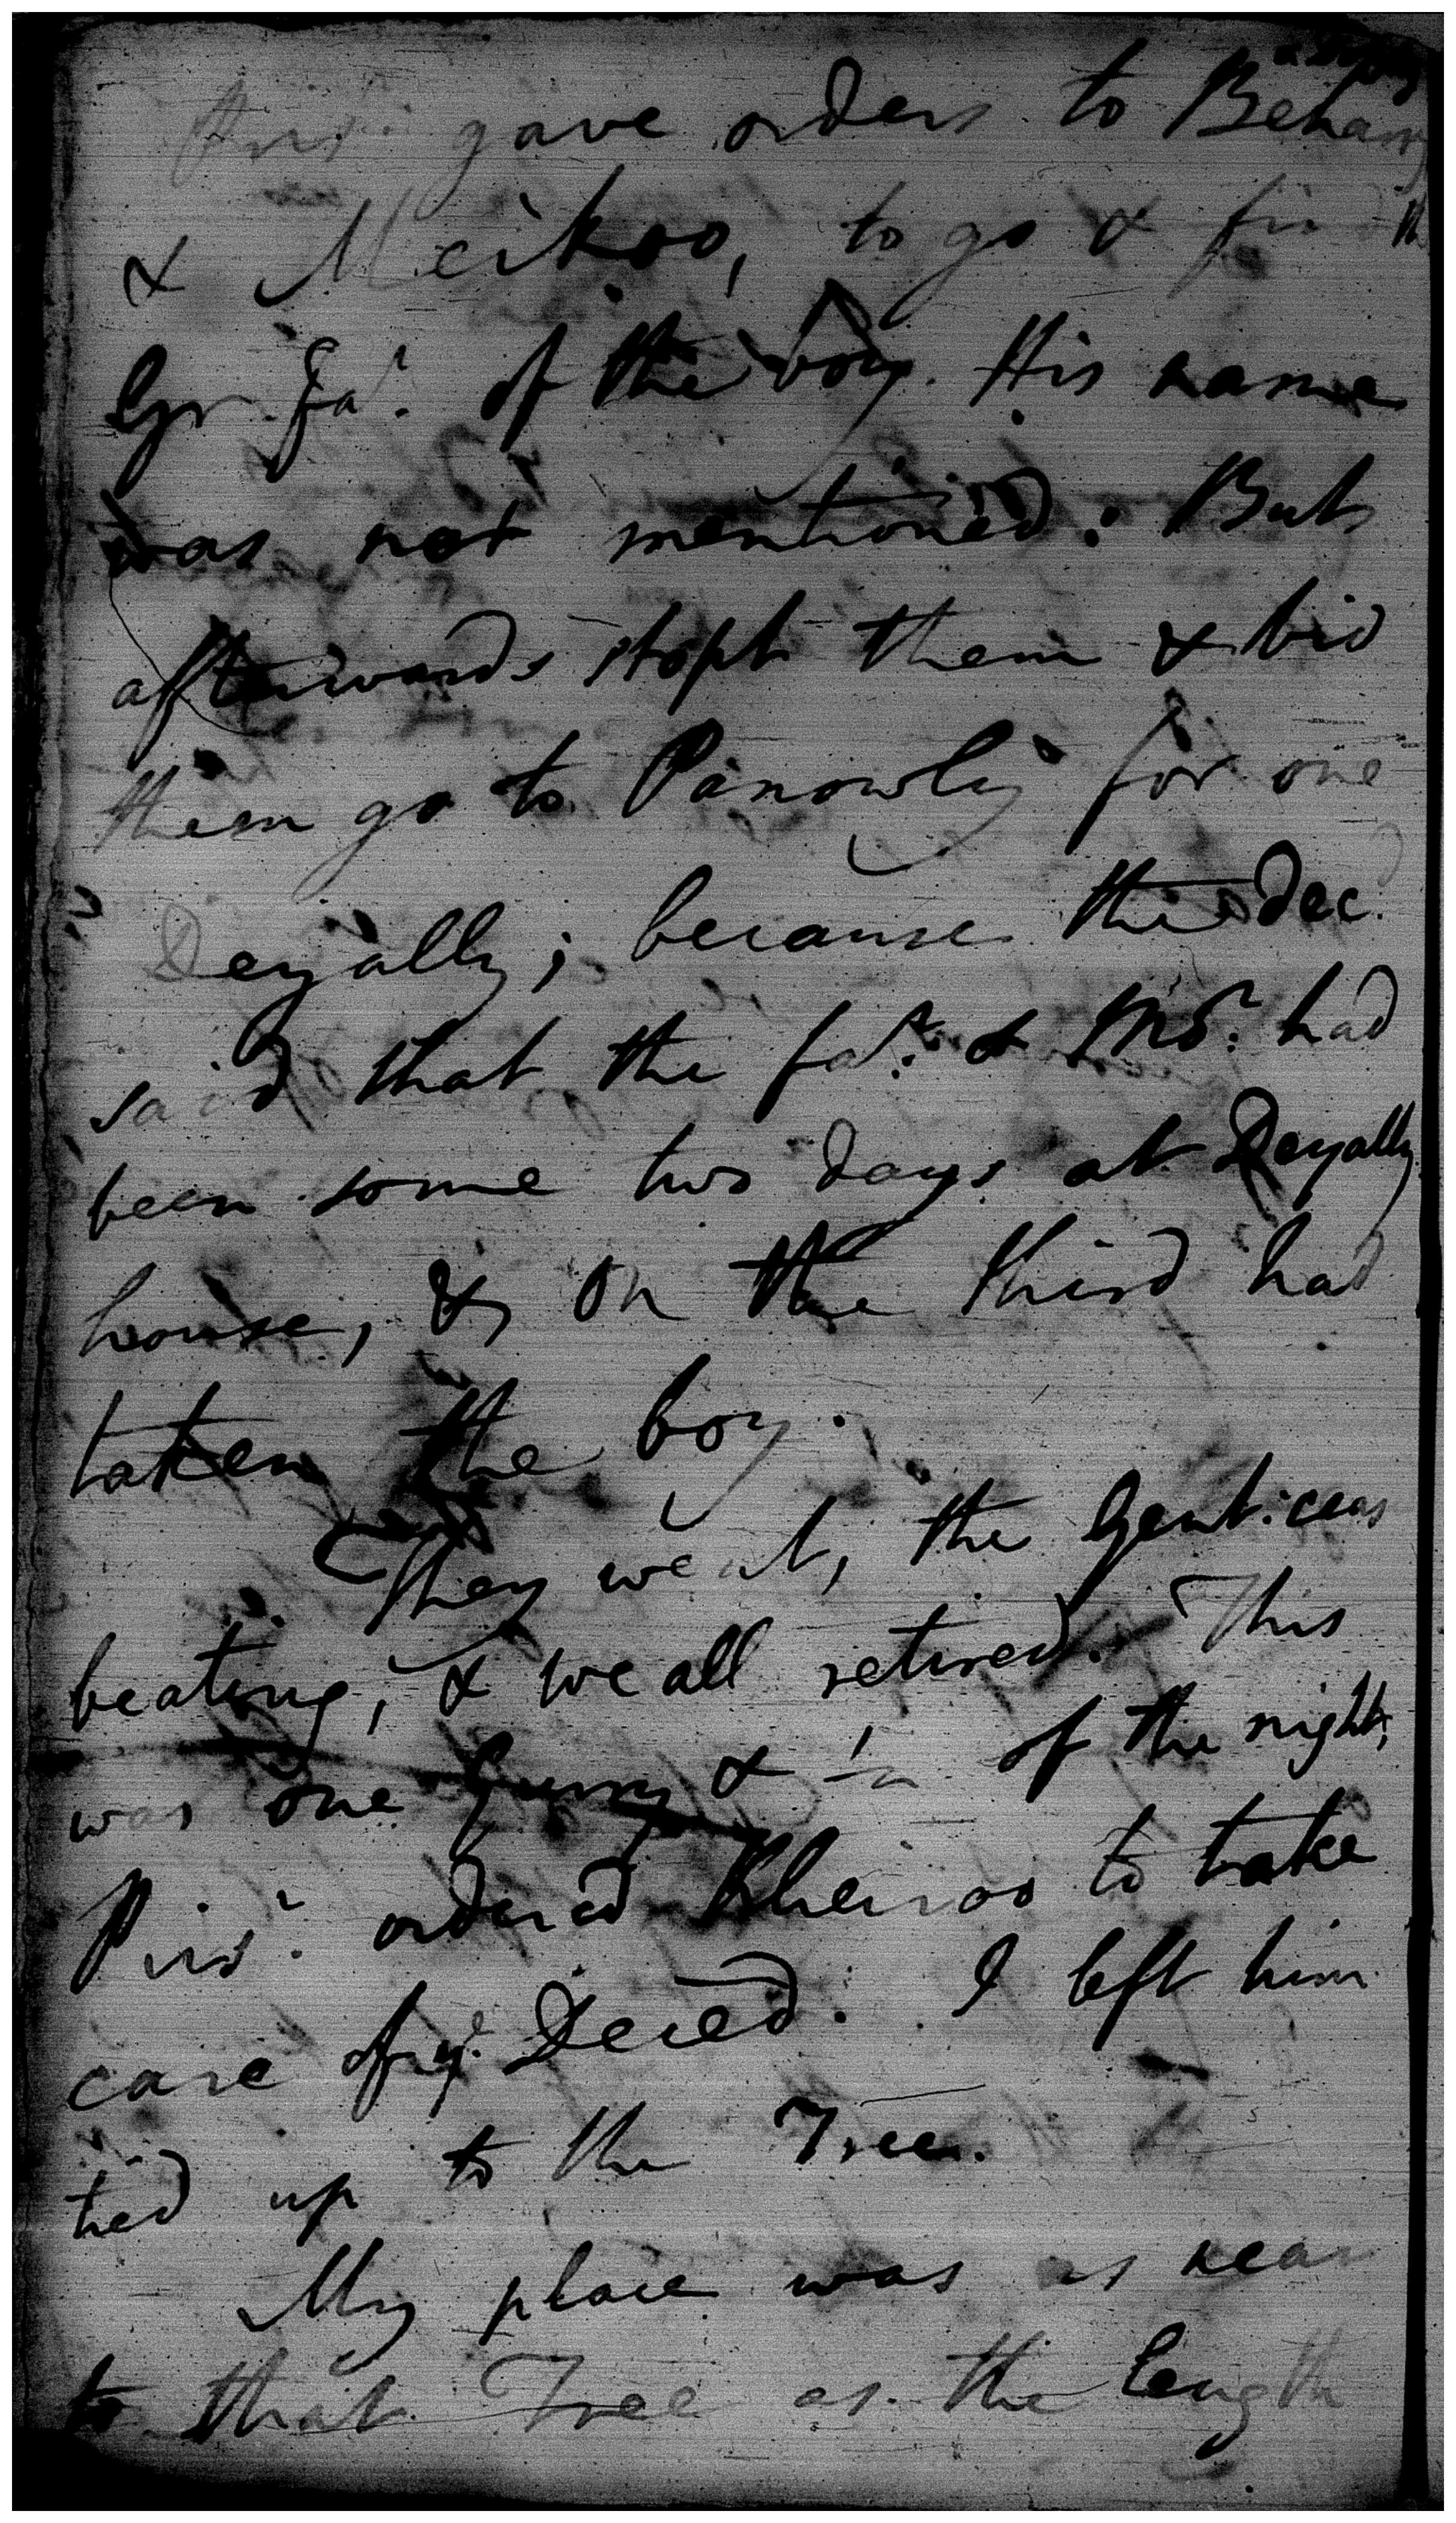 a sepoy
Pris.r gave orders to Beharry
& Meikoo, to go & find the
Gr. Fa.r of the boy. His name
was not mentioned: But
afterwards stopt them & bid
them go to Panowly for one
Deyally; because the Dec.d
said that the fa.r & Mo.r had
been some two days at Deyally
house, & on the third had
taken the boy.
They went, the Gent. ceas
beating, & we all retired. This
was one Gurry & ½ of the night,
Pris.r ordered Kheiroo to take
care of y.e Deced. I left him
tied up to the Tree.
My place was as near
to that Tree as the length